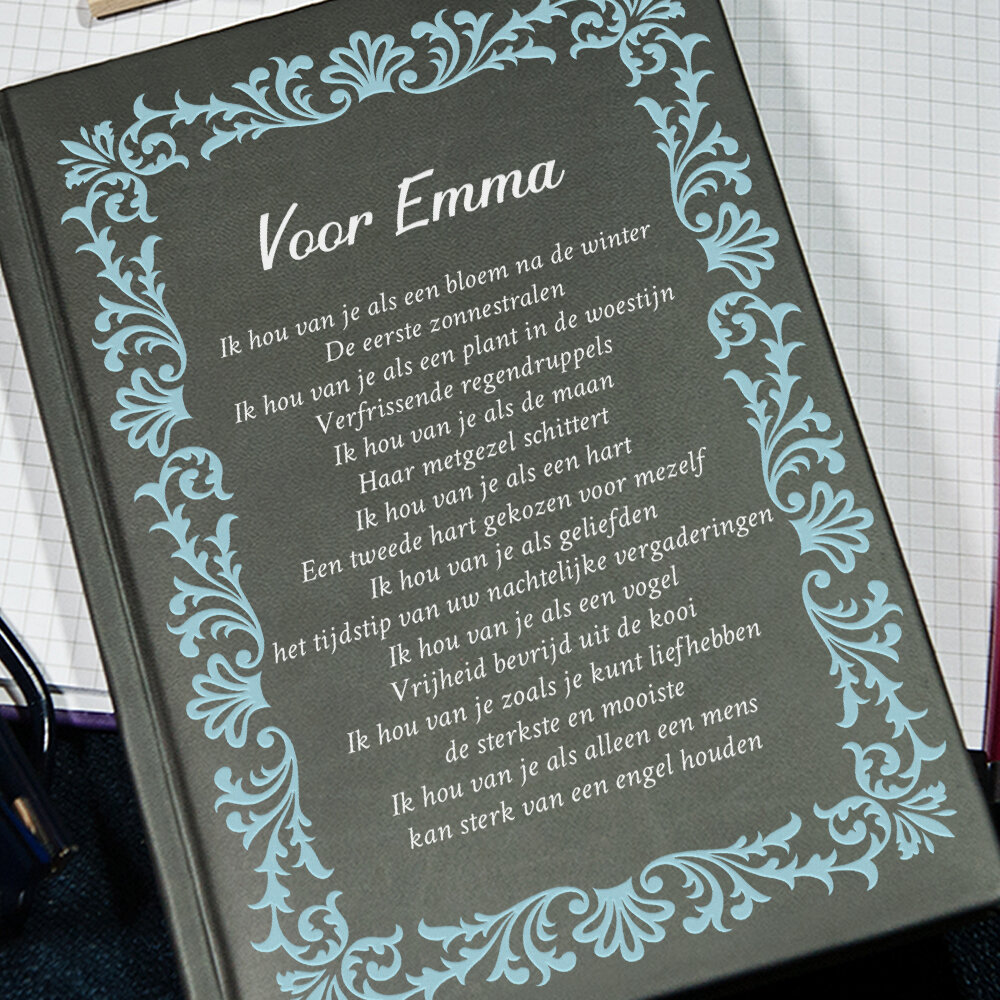 Voor Emma
Ik hou van je als een bloem na de winter
De eerste zonnestralen
Ik hou van je als een plant in de woestijn
Verfrissende regendruppels
Ik hou van je als de maan
Haar metgezel schittert
Ik hou van je als een hart
Een tweede hart gekozen voor mezelf
Ik hou van je als geliefden
het tijdstip van uw nachtelijke vergaderingen
Ik hou van je als een vogel
Vrijheid bevrijd uit de kooi
Ik hou van je zoals je kunt liefhebben
de sterkste en mooiste
Ik hou van je als alleen een mens
kan sterk van een engel houden